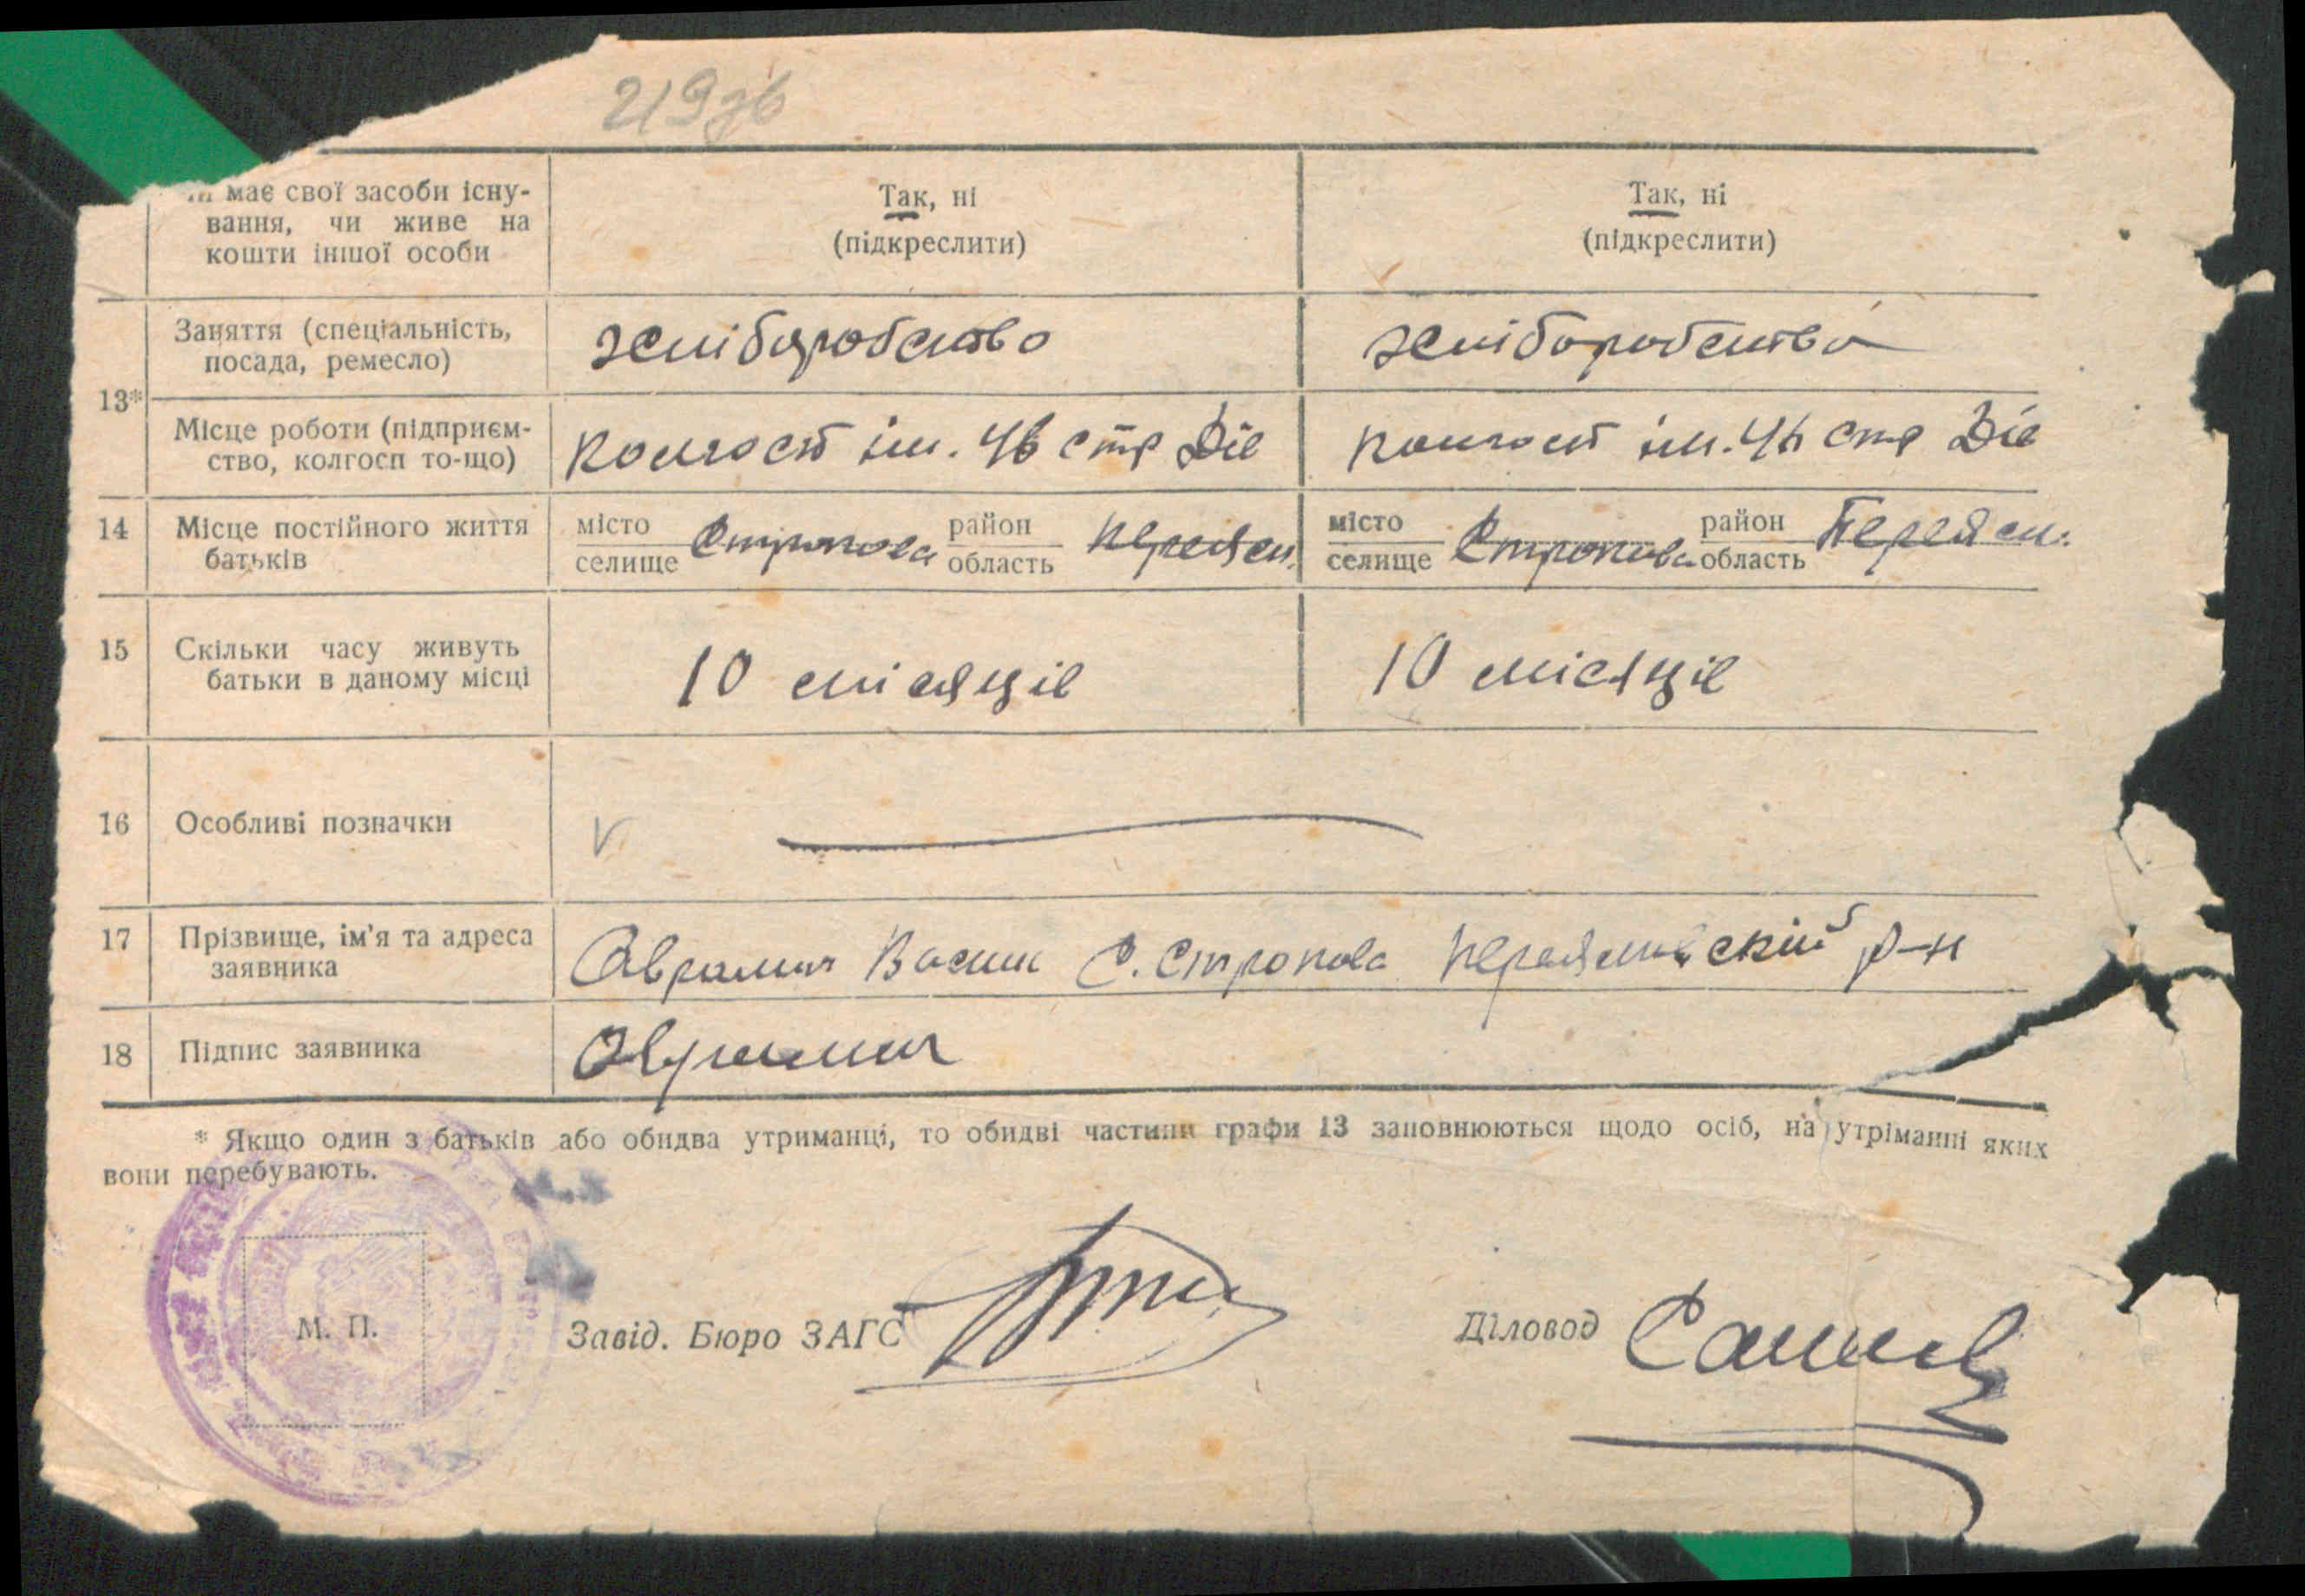 219зв
має свої засоби існу-
вання, чи живе на
кошти іншої особи
Так, ні
(підкреслити)
Так, ні
(підкреслити)
13*
Заняття (спеціальність,
посада, ремесло)
хліборобство
хліборобство
Місце роботи (підприєм-
ство, колгосп то-що)
колгосп ім. Чв стр Дів
колгосп ім. Чв стр Дів
14
Місце постійного життя
батьків
місто
селище
Строкова
район
область
Переясл.
місто
селище
Строкова
район
область
Переясл.
15
Скільки часу живуть
батьки в даному місці
10 місяців
10 місяців
16
Особливі позначки
V
17
Прізвище, ім'я та адреса
заявника
Аврамич Васил С. Строкова Переяславский р-н
18
Підпис заявника
Аврамич
* Якщо один з батьків або обидва утриманці, то обидві частини графи 13 заповнюються щодо осіб, на утріманні яких
вони перебувають.
М. П.
Завід. Бюро ЗАГС
Діловод